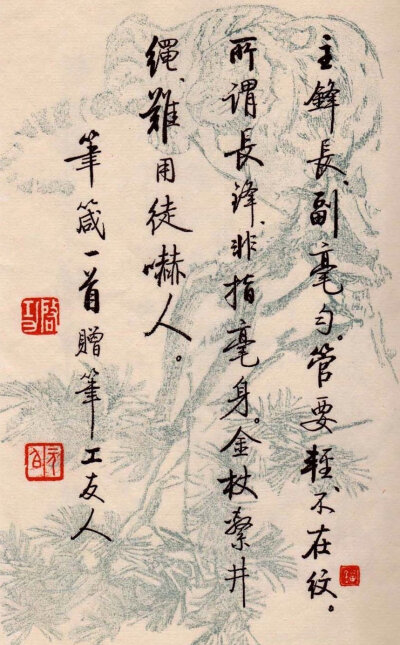 主鋒長、副毫勻。管要輕、不在紋。
所謂長鋒、非指毫身。金杖繫井
繩、難用徒嚇人。
筆箴一首贈筆工友人
啓功